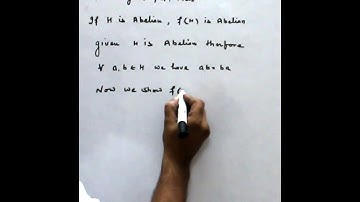 If H is Abelian, f(H) is Abelian
given H is Abelian therfore
∀ a,b ∈ H we have ab = ba
Now we show f(